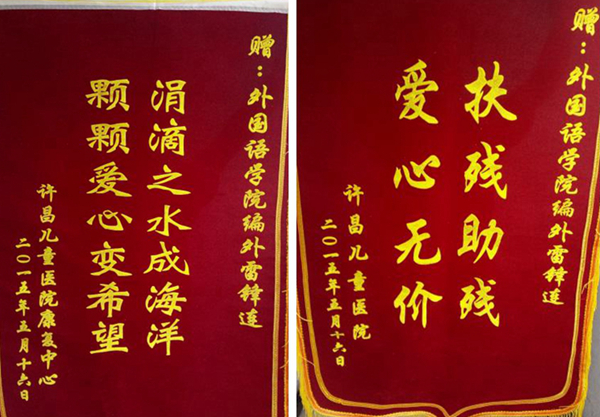 赠：外国语学院编外雷锋连
涓滴之水成海洋
颗颗爱心变希望
许昌儿童医院康复中心
二〇一五年五月十六日
赠：外国语学院编外雷锋连
扶残助残
爱心无价
许昌儿童医院
二〇一五年五月十六日